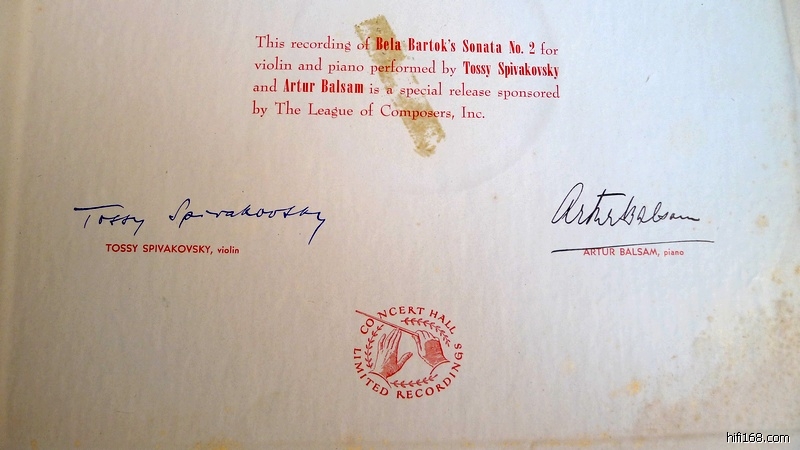 This recording of Bela Bartok's Sonata No. 2 for
violin and piano performed by Tossy Spivakovsky
and Artur Balsam is a special release sponsored
by The League of Composers, Inc.
Tossy Spivakovsky
TOSSY SPIVAKOVSKY, violin
Artur Balsam
ARTUR BALSAM, piano
CONCERT HALL
LIMITED RECORDINGS
hifi168.com